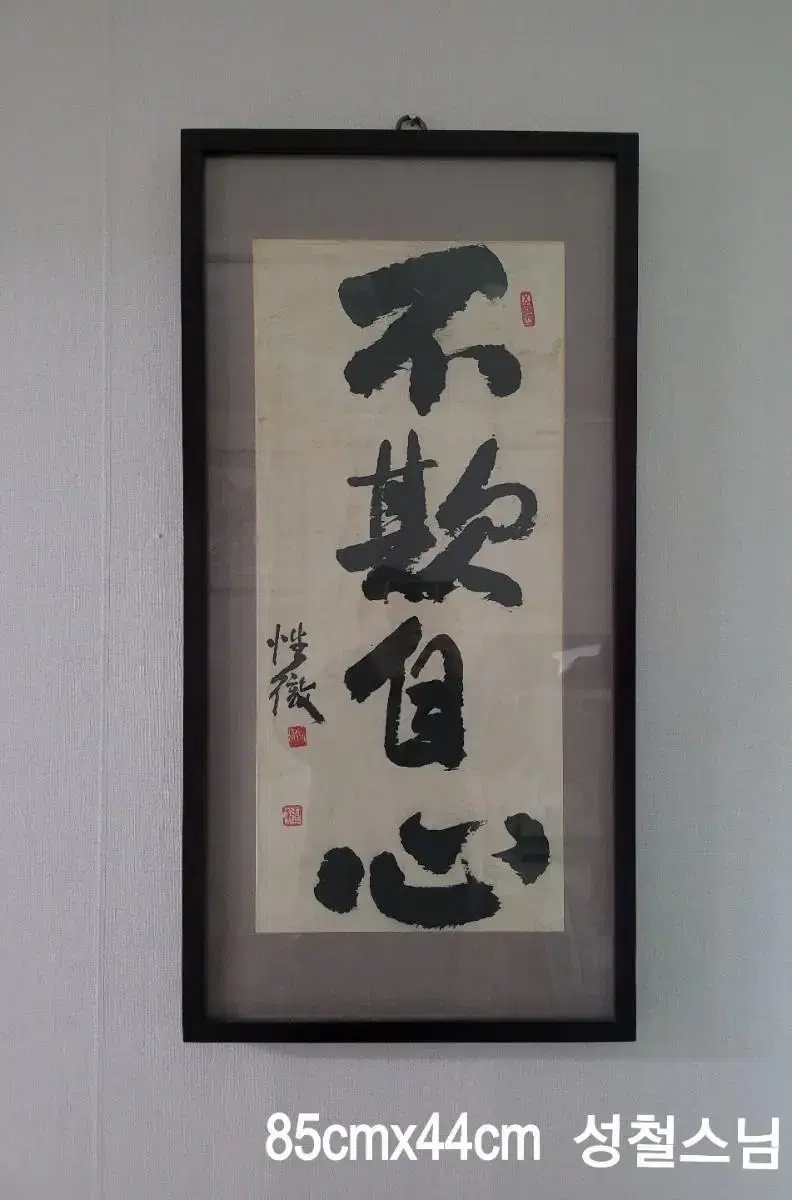 不欺自心
性徹
85cmx44cm 성철스님